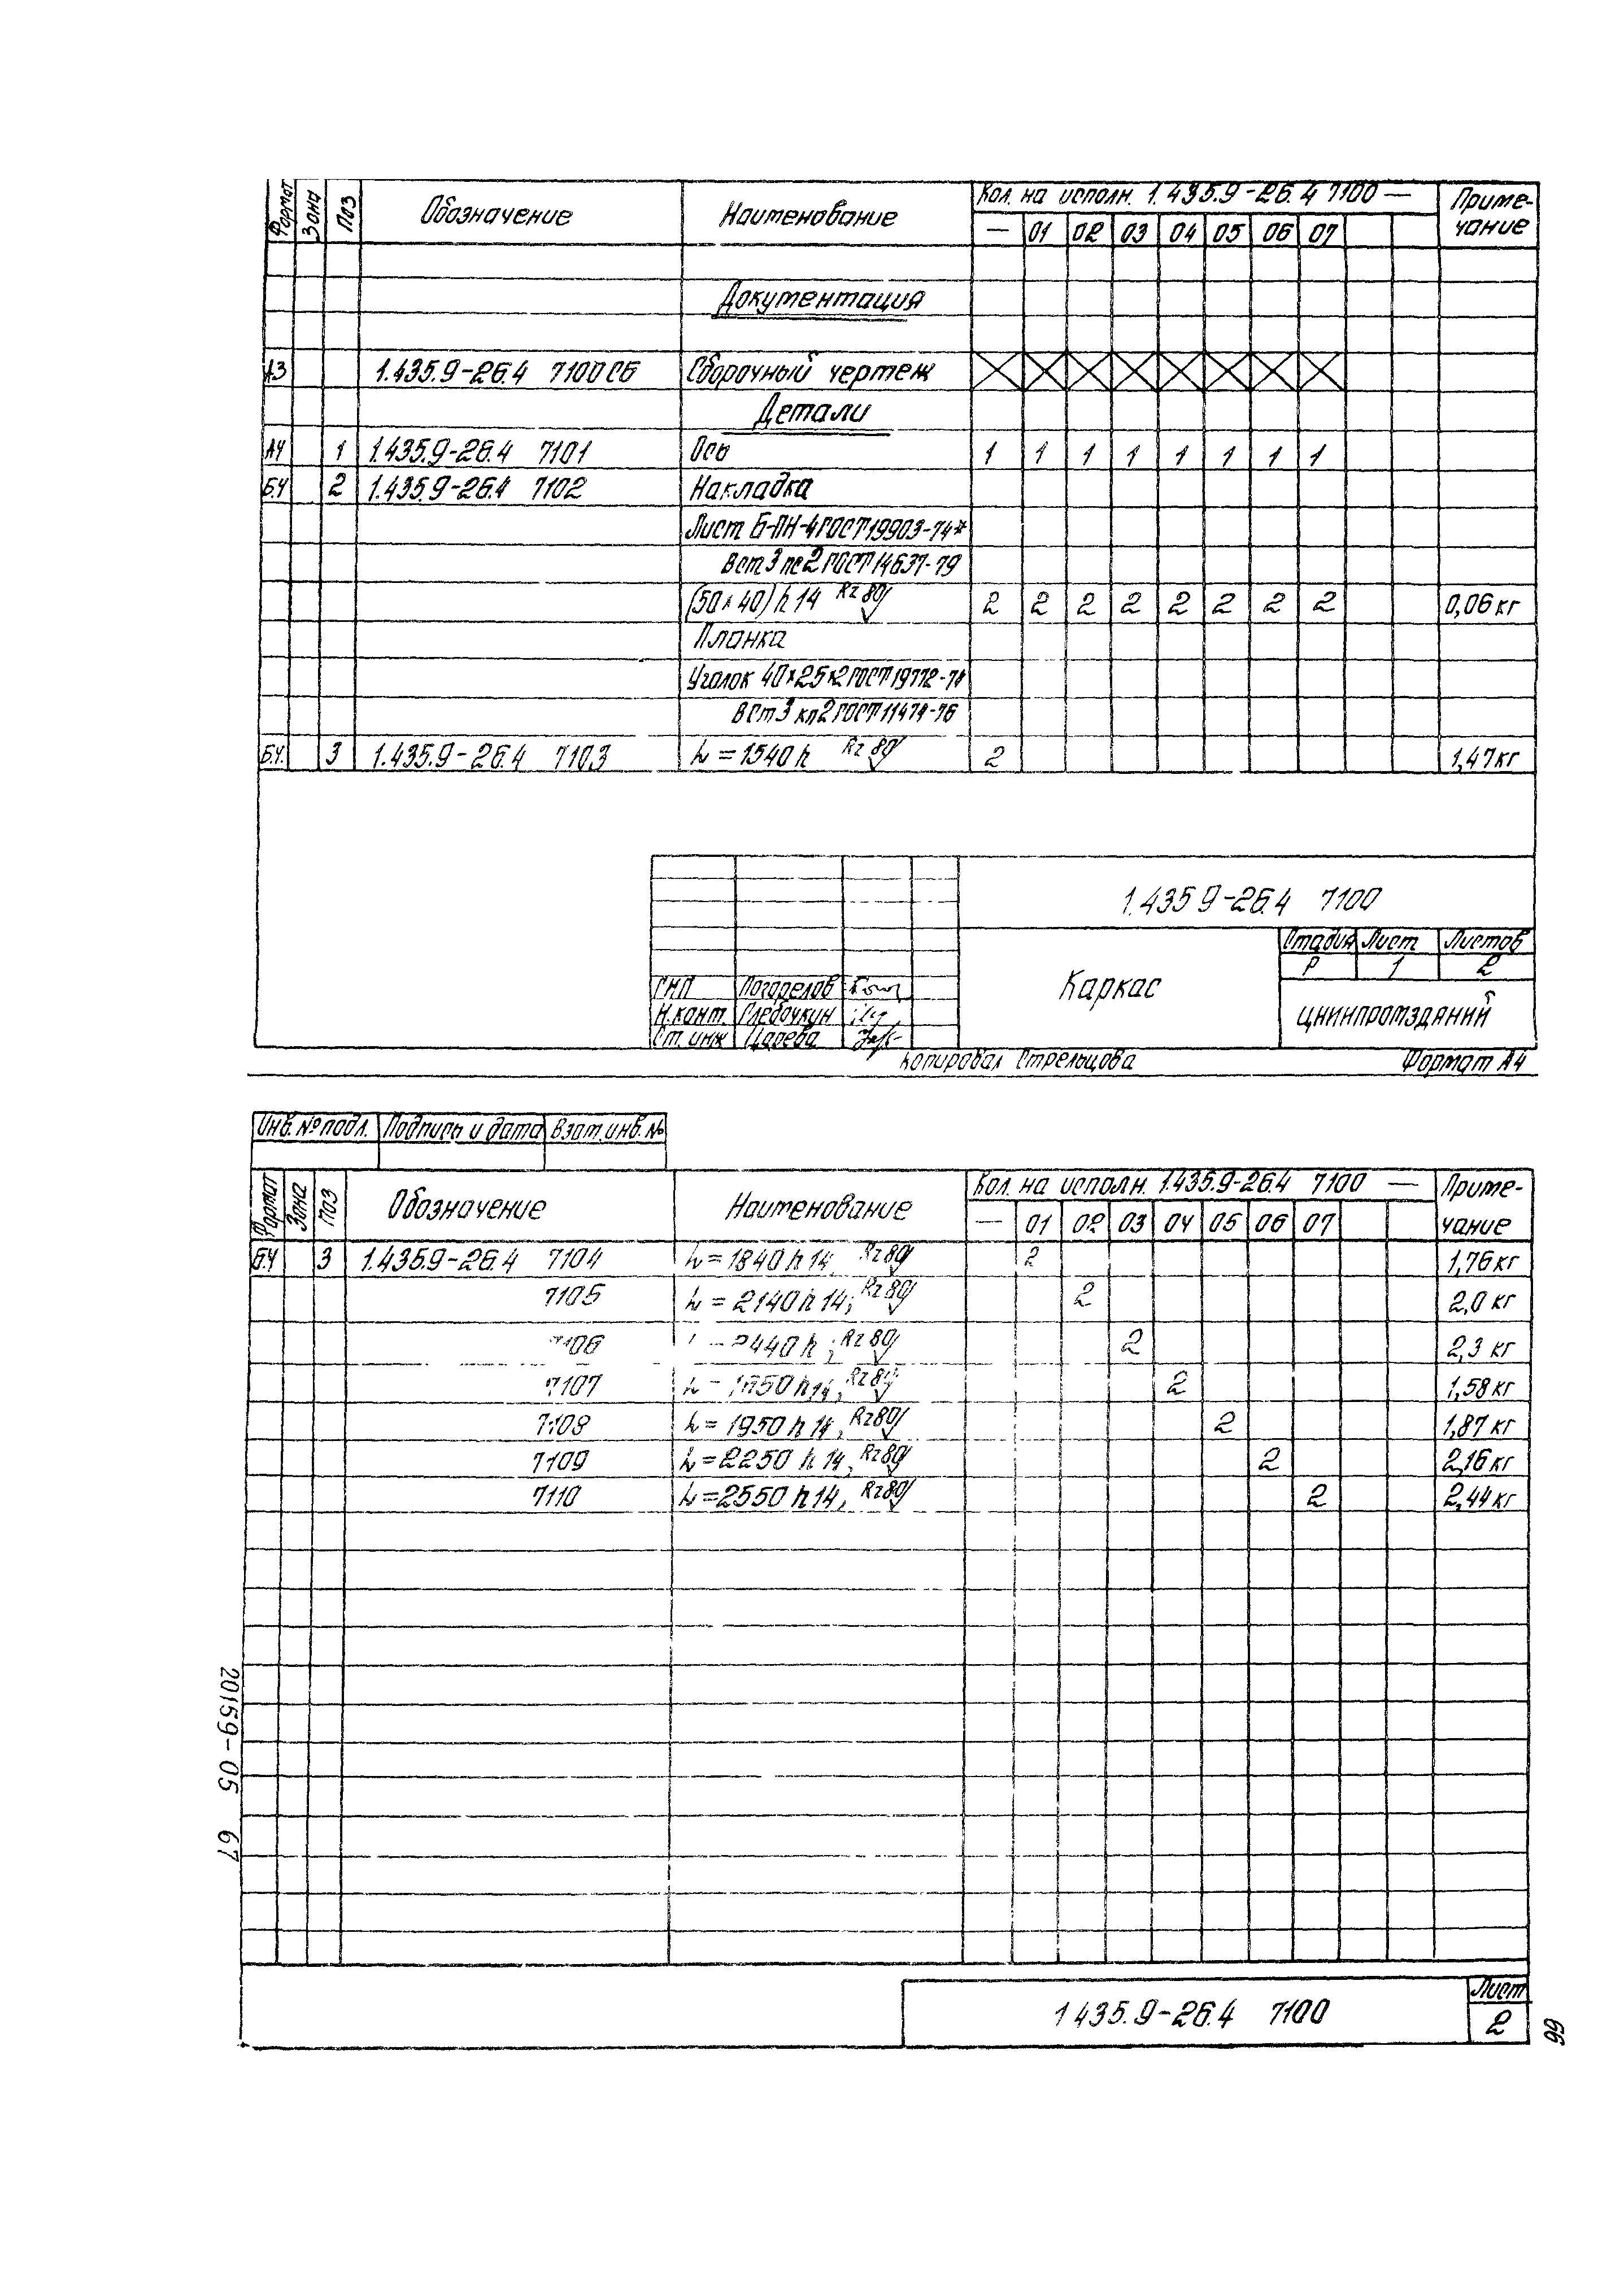 Формат Зона Поз Обозначение Наименование Кол. на исполн. 1.435.9-26.4 7100 — Приме-
чание
— 01 02 03 04 05 06 07
Документация
А3 1.435.9-26.4 7100СБ Сборочный чертеж
Детали
А4 1 1.435.9-26.4 7101 Ось 1 1 1 1 1 1 1 1
Б.Ч 2 1.435.9-26.4 7102 Накладка
Лист Б-ПН-4 ГОСТ 19903-74*
ВСт3 пс2 ГОСТ 14637-79
(50×40) h14 Rz 80 2 2 2 2 2 2 2 2 0,06 кг
Планка
Уголок 40×25×2 ГОСТ 19772-74
ВСт3 кп2 ГОСТ 11474-76
Б.Ч. 3 1.435.9-26.4 7103 L=1540 h Rz 80 2 1,47 кг
1.435 9-26.4 7100
Стадия Лист Листов
Р 1 2
Каркас
ЦНИИПРОМЗДАНИЙ
ГИП Погорелов
Н.конт. Гледочкин
Ст. инж Царева
Копировал Стрельцова Формат А4
Инв. № подл. Подпись и дата Взам. инв. №
Формат Зона Поз Обозначение Наименование Кол. на исполн. 1.435.9-26.4 7100 — Приме-
чание
— 01 02 03 04 05 06 07
Б.Ч 3 1.435.9-26.4 7104 L=1840 h 14 Rz80 2 1,76 кг
7105 L=2140 h 14; Rz80 2 2,0 кг
7106 2440 h ; Rz80 2 2,3 кг
7107 L=1650 h14, Rz80 2 1,58 кг
7108 L=1950 h 14, Rz80 2 1,87 кг
7109 L=2250 h 14, Rz80 2 2,16 кг
7110 L=2550 h14, Rz80 2 2,44 кг
20159-05 67
1 435.9-26.4 7100
Лист
2
66